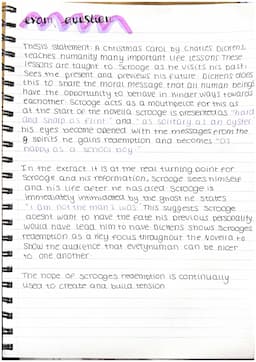 exam question
Thesis statement: A Christmas Carol by Charles Dickens
teaches humanity many important life lessons These
lessons are taught to Scrooge as he visits his past,
Sees the present and previews his future. Dickens does
this to share the moral message that all human beings
have the opportunity to behave in kinder ways towards
eachother. Scrooge acts as a mouthpiece for this as
at the start of the novella scrooge is presented as "hard
and sharp as flint" and "as solitary as an oyster"
his eyes become opened with the messages from the
spirits he gains redemption and becomes "as
happy as a school boy"
In the extract it is at the real turning point for
Scrooge and his reformation, Scrooge sees himself
and his life after he has died. Scrooge is
immediately intimidated by the ghost he states
"I am not the man I was" This suggests Scrooge
doesnt want to have the fate his previous personality
would have lead him to have Dickens shows Scrooges
redemption as a key focus throughout the Novella to
Show the audience that everyhuman can be nicer
to one another
The hope of scrooges redemption is continually
used to create and build tension